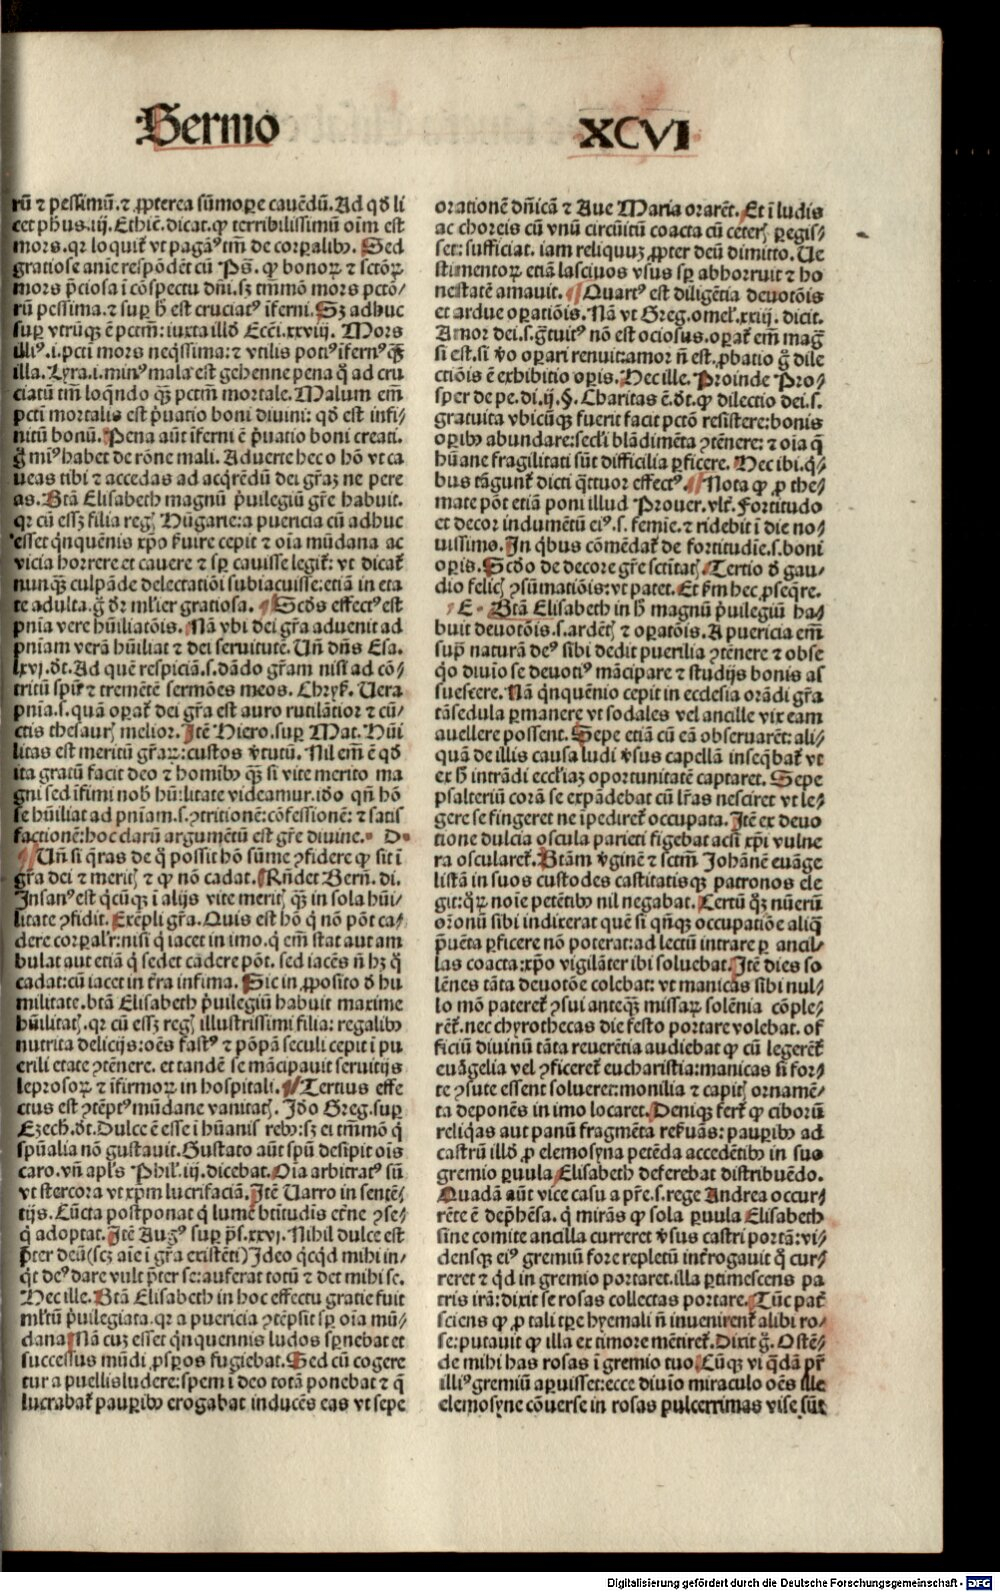 Sermo XCVI
rū ⁊ pessimū. ⁊ ꝓpterea sūmopere cauēdū. Ad qd̄ li
cet ph̄us. iij. Ethic̄. dicat. ꝙ terribilissimū oīm est
mors. qr loquit᷑ vt pagan⁹ tm̄ de corꝑalibꝰ. Sed
gratiose anīe respōdēt cū Ps̄. ꝙ bonoꝝ ⁊ sctōꝝ
mors p̄ciosa ī cōspectu dn̄i. sꝫ tm̄mō mors pctō⸗
rū pessima. ⁊ suꝑ h̄ est cruciat⁹ īferni. Sꝫ adhuc
suꝑ vtrūqꝫ ē pctm̄: iuxta illd̄ Ecc̄i. xxviij. Mors
illi⁹. i. pcti mors neq̄ssima: ⁊ vtilis poti⁹ īfern⁹ qꝫ̄
illa. Lyra. i. min⁹ mala est gehenne pena q̄ ad cru
ciatū tm̄ loq̄ndo qꝫ̄ pctm̄ mortale. Malum em̄
pcti mortalis est p̄uatio boni diuini: qd̄ est infi⸗
nitū bonū. Pena aūt īferni ē p̄uatio boni creati.
g̊ mi⁹ habet de rōne mali. Aduerte hec o hō vt ca
ueas tibi ⁊ accedas ad acq̄rēdū dei gr̄az ne pere
as. Btā Elisabeth magnū p̄uilegiū gr̄e habuit.
qr cū eēꝫ filia regꝭ Hūgarie: a puericia cū adhuc
esset q̄nquēnis xp̄o ẜuire cepit ⁊ oīa mūdana ac
vicia horrere et cauere ⁊ sꝑ cauisse legit᷑: vt dicat᷑
nunqꝫ̄ culpāde delectatiōi subiacuisse: etiā in eta
te adulta. g̊ dr̄ ml̄ier gratiosa. Scd̄s effect⁹ est
pn̄ia vere hūiliatōis. Nā vbi dei gr̄a aduenit ad
pn̄iam verā hūiliat ⁊ dei seruitutē. Vn̄ dn̄s Esa.
lxvj. dt̄. Ad quē respiciā. s. dādo gr̄am nisi ad cō⸗
tritū spir̄ ⁊ tremētē sermōes meos. Chryſ. Vera
pn̄ia. s. quā oꝑat᷑ dei gr̄a est auro rutilātior ⁊ cū⸗
ctis thesaurꝭ melior. Itē Hiero. suꝑ Mat. Hūi
litas est meritū gr̄aꝝ: custos v̄tutū. Nil em̄ ē qd̄
ita gratū facit deo ⁊ homībꝰ qꝫ̄ si vite merito ma
gni sed īfimi nob̄ hūilitate videamur. iō qn̄ hō
se hūiliat ad pn̄iam. s. ꝯtritionē: cōfessionē: ⁊ satis
factionē: hoc clarū argumētū est gr̄e diuine. D
Vn̄ si q̄ras de q̊ possit hō sūme ꝯfidere ꝙ sit ī
gr̄a dei ⁊ meritꝭ ⁊ ꝙ nō cadat. Rn̄det Bern̄. di.
Insan⁹ est q̄cūqꝫ ī alijs vite meritꝭ qꝫ in sola hūi⸗
litate ꝯfidit. Exēpli gr̄a. Quis est hō q̄ nō pōt ca⸗
dere corꝑalr̄: nisi q̄ iacet in imo. q̄ em̄ stat aut am
bulat aut etiā q̄ sedet cadere pōt. sed iacēs n̄ hꝫ q̊
cadat: cū iacet in ťra infima. Sic in ꝓposito d̄ hu
militate. btā Elisabeth p̄uilegiū habuit maxime
hūilitatꝭ. qr cū eēꝫ regꝭ illustrissimi filia: regalibꝰ
nutrita delicijs: oēs fast⁹ ⁊ pōpā seculi cepit ī pu
erili etate ꝯtēnere. et tandē se mācipauit seruitijs
leprosoꝝ ⁊ īfirmoꝝ in hospitali. Tertius effe
ctus est ꝯtēpt⁹ mūdane vanitatꝭ. Idō Greg. suꝑ
Ezech. dt̄. Dulce ē esse ī hūanis rebꝰ: sꝫ ei tm̄mō q̄
spūalia nō gustauit. Gustato aūt spū desipit oīs
caro. vn̄ apl̄s Phil̄. iij. dicebat. Oīa arbitrat⁹ sū
vt stercora vt xp̄m lucrifaciā. Itē Uarro in sentē⸗
tijs. Cūcta postponat q̄ lumē btītudis et̄ne ꝯse⸗
q̄ adoptat. Itē Aug⁹ suꝑ ps̄. xxvj. Nihil dulce est
p̄ter deū (scꝫ aīe ī gr̄a existēti) Ideo q̄cqd mihi in⸗
q̄t de⁹ dare vult p̄ter se: auferat totū ⁊ det mihi se.
Hec ille. Btā Elisabeth in hoc effectu gratie fuit
ml̄tū p̄uilegiata. qr a puericia ꝯtēpsit sꝑ oīa mū⸗
dana. Nā cuꝫ esset q̄nquennis ludos spernebat et
successus mūdi ꝓsꝑos fugiebat. Sed cū cogere
tur a puellis ludere: spem ī deo totā ponebat ⁊ q̄
lucrabat᷑ pauꝑibꝰ erogabat inducēs eas vt sepe
orationē dn̄icā ⁊ Aue Maria orarēt. Et ī ludis
ac choreis cū vnū circūitū coacta cū ceterꝭ peregis⸗
set: sufficiat. iam reliquuꝫ ꝓpter deū dimitto. Ve
stimentoꝝ etiā lasciuos vsus sꝑ abhorruit ⁊ ho
nestatē amauit. Quart⁹ est diligētia deuotōis
et ardue oꝑatiōis. Nā vt Greg. omel̄. xxiij. dicit.
Amor dei. s. g̊tuit⁹ nō est ociosus. oꝑat᷑ em̄ magᷓ
si est. si v̄o oꝑari renuit: amor n̄ est. ꝓbatio g̊ dile
ctiōis ē exhibitio oꝑis. Hec ille. Proinde Pro⸗
sper de pe. di. ij. §. Charitas ē. dt̄. ꝙ dilectio dei. s.
gratuita vbicūqꝫ fuerit facit pctō resistere: bonis
oꝑibꝰ abundare: seclī blādimēta ꝯtēnere: ⁊ oīa q̄
hūane fragilitati sūt difficilia ꝑficere. Hec ibi. q̄⸗
bus tāgunt᷑ dicti q̄ttuor effect⁹. Nota ꝙ ꝓ the⸗
mate pōt etiā poni illud Prouer. vlt̄. Fortitudo
et decor indumētū ei⁹. s. femīe. ⁊ ridebit ī die no⸗
uissimo. In q̄bus cōmēdat᷑ de fortitudīe. s. boni
oꝑis. Scd̄o de decore gr̄e sctītatꝭ. Tertio d̄ gau⸗
dio felicꝭ ꝯsūmatiōis: vt patet. Et ẜm hec ꝓseq̄re.
E Btā Elisabeth in h̄ magnū p̄uilegiū ha⸗
buit deuotōis. s. ardētꝭ ⁊ oꝑatōis. A puericia em̄
supͣ naturā de⁹ sibi dedit puerilia ꝯtēnere ⁊ obse
q̊o diuīo se deuoti⁹ mācipare ⁊ studijs bonis as
suescere. Nā q̄nquēnio cepit in ecclesia orādi gr̄a
tā sedula ꝑmanere vt sodales vel ancille vix eam
auellere possent. Sepe etiā cū eā obseruarēt: ali⸗
quā de illis causa ludi v̄sus capellā inseq̄bat᷑ vt
ex h̄ intrādi eccl̄iaꝫ oportunitatē captaret. Sepe
psalteriū corā se expādebat cū lr̄as nesciret vt le⸗
gere se fingeret ne īpediret᷑ occupata. Itē ex deuo
tione dulcia oscula parieti figebat acsi xp̄i vulne
ra oscularet᷑. Btam v̄ginē ⁊ sctm̄ Johānē euāge
listā in suos custodes castitatisqꝫ patronos ele
git: q̊ꝝ noīe petētibꝰ nil negabat. Certū qꝫ nūerū
orōnū sibi indixerat quē si q̄nqꝫ occupatiōe aliq̄
p̄uēta ꝑficere nō poterat: ad lectū intrare ꝑ ancil⸗
las coacta: xp̄o vigilāter ibi soluebat. Itē dies so
lēnes tāta deuotōe colebat: vt manicas sibi nul⸗
lo mō pateret᷑ ꝯsui anteqꝫ̄ missaꝝ solēnia cōple⸗
rēt᷑. nec chyrothecas die festo portare volebat. of
ficiū diuinū tāta reuerētia audiebat ꝙ cū legerēt᷑
euāgelia vel ꝯficeret᷑ eucharistia: manicas si for⸗
te ꝯsute essent solueret: monilia ⁊ capitꝭ ornamē⸗
ta deponēs in imo locaret. Deniqꝫ fert᷑ ꝙ ciborū
reliq̄as aut panū fragmēta reẜuās: pauꝑibꝰ ad
castrū illd̄ ꝓ elemosyna petēda accedētibꝰ in suo
gremio ꝑuula Elisabeth deferebat distribuēdo.
Quadā aūt vice casu a pr̄e. s. rege Andrea occur⸗
rēte ē dep̄hēsa. q̄ mirās ꝙ sola ꝑuula Elisabeth
sine comite ancilla curreret v̄sus castri portā: vi⸗
densqꝫ ei⁹ gremiū fore repletū inťrogauit q̊ cur⸗
reret ⁊ qd̄ in gremio portaret. illa ꝑtimescens pa
tris irā: dixit se rosas collectas portare. Tūc pat᷑
sciens ꝙ ꝓ tali tꝑe hyemali n̄ inuenirent᷑ alibi ro⸗
se: putauit ꝙ illa ex timore mētiret᷑. Dixit g̊. Ostē⸗
de mihi has rosas ī gremio tuo. Cūqꝫ vi q̄dā pr̄
illi⁹ gremiū aꝑuisset: ecce diuīo miraculo oēs ille
elemosyne cōuerse in rosas pulcerrimas vise sūt
Digitalisierung gefördert durch die Deutsche Forschungsgemeinschaft - DFG